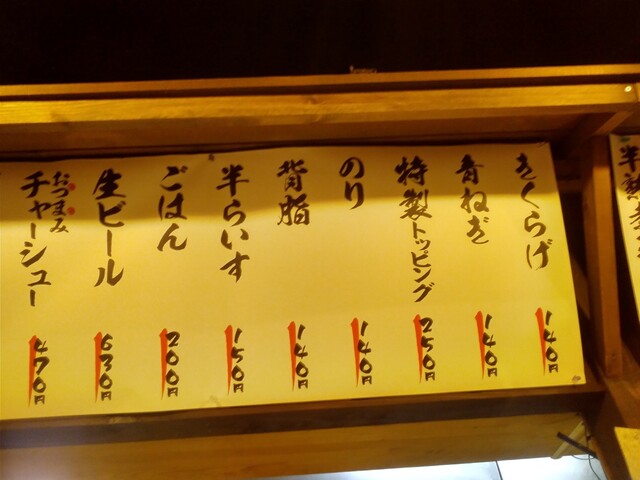 きくらげ
140円
青ねぎ
140円
特製トッピング
250円
のり
140円
背脂
140円
半らいす
150円
ごはん
200円
生ビール
630円
おつまみ
チャーシュー
470円